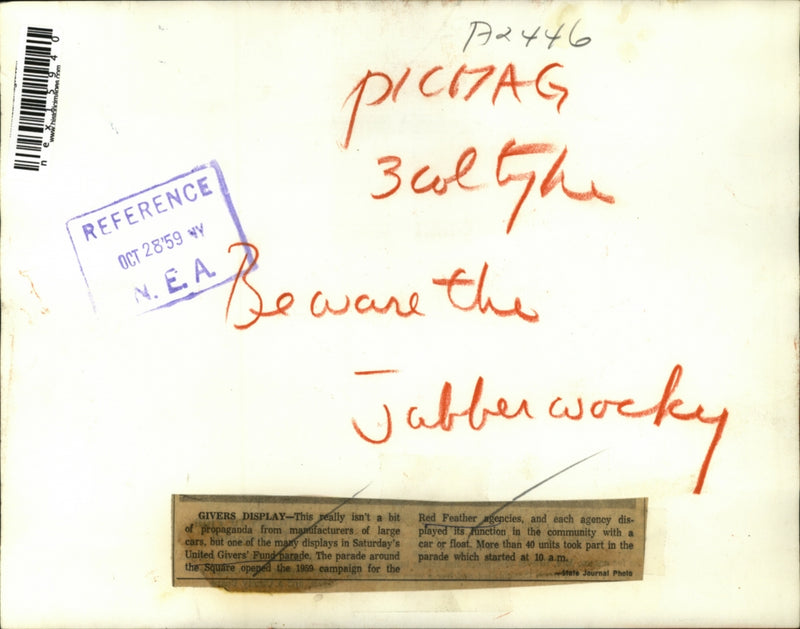 A2446
PICMAG
3 col tyke
Beware the
Jabberwocky
REFERENCE
OCT 28'59 NY
N.E.A.
nex15940
GIVERS DISPLAY—This really isn't a bit
of propaganda from manufacturers of large
cars, but one of the many displays in Saturday's
United Givers' Fund parade. The parade around
the Square opened the 1959 campaign for the
Red Feather agencies, and each agency dis-
played its function in the community with a
car or float. More than 40 units took part in the
parade which started at 10 a.m.
—State Journal Photo